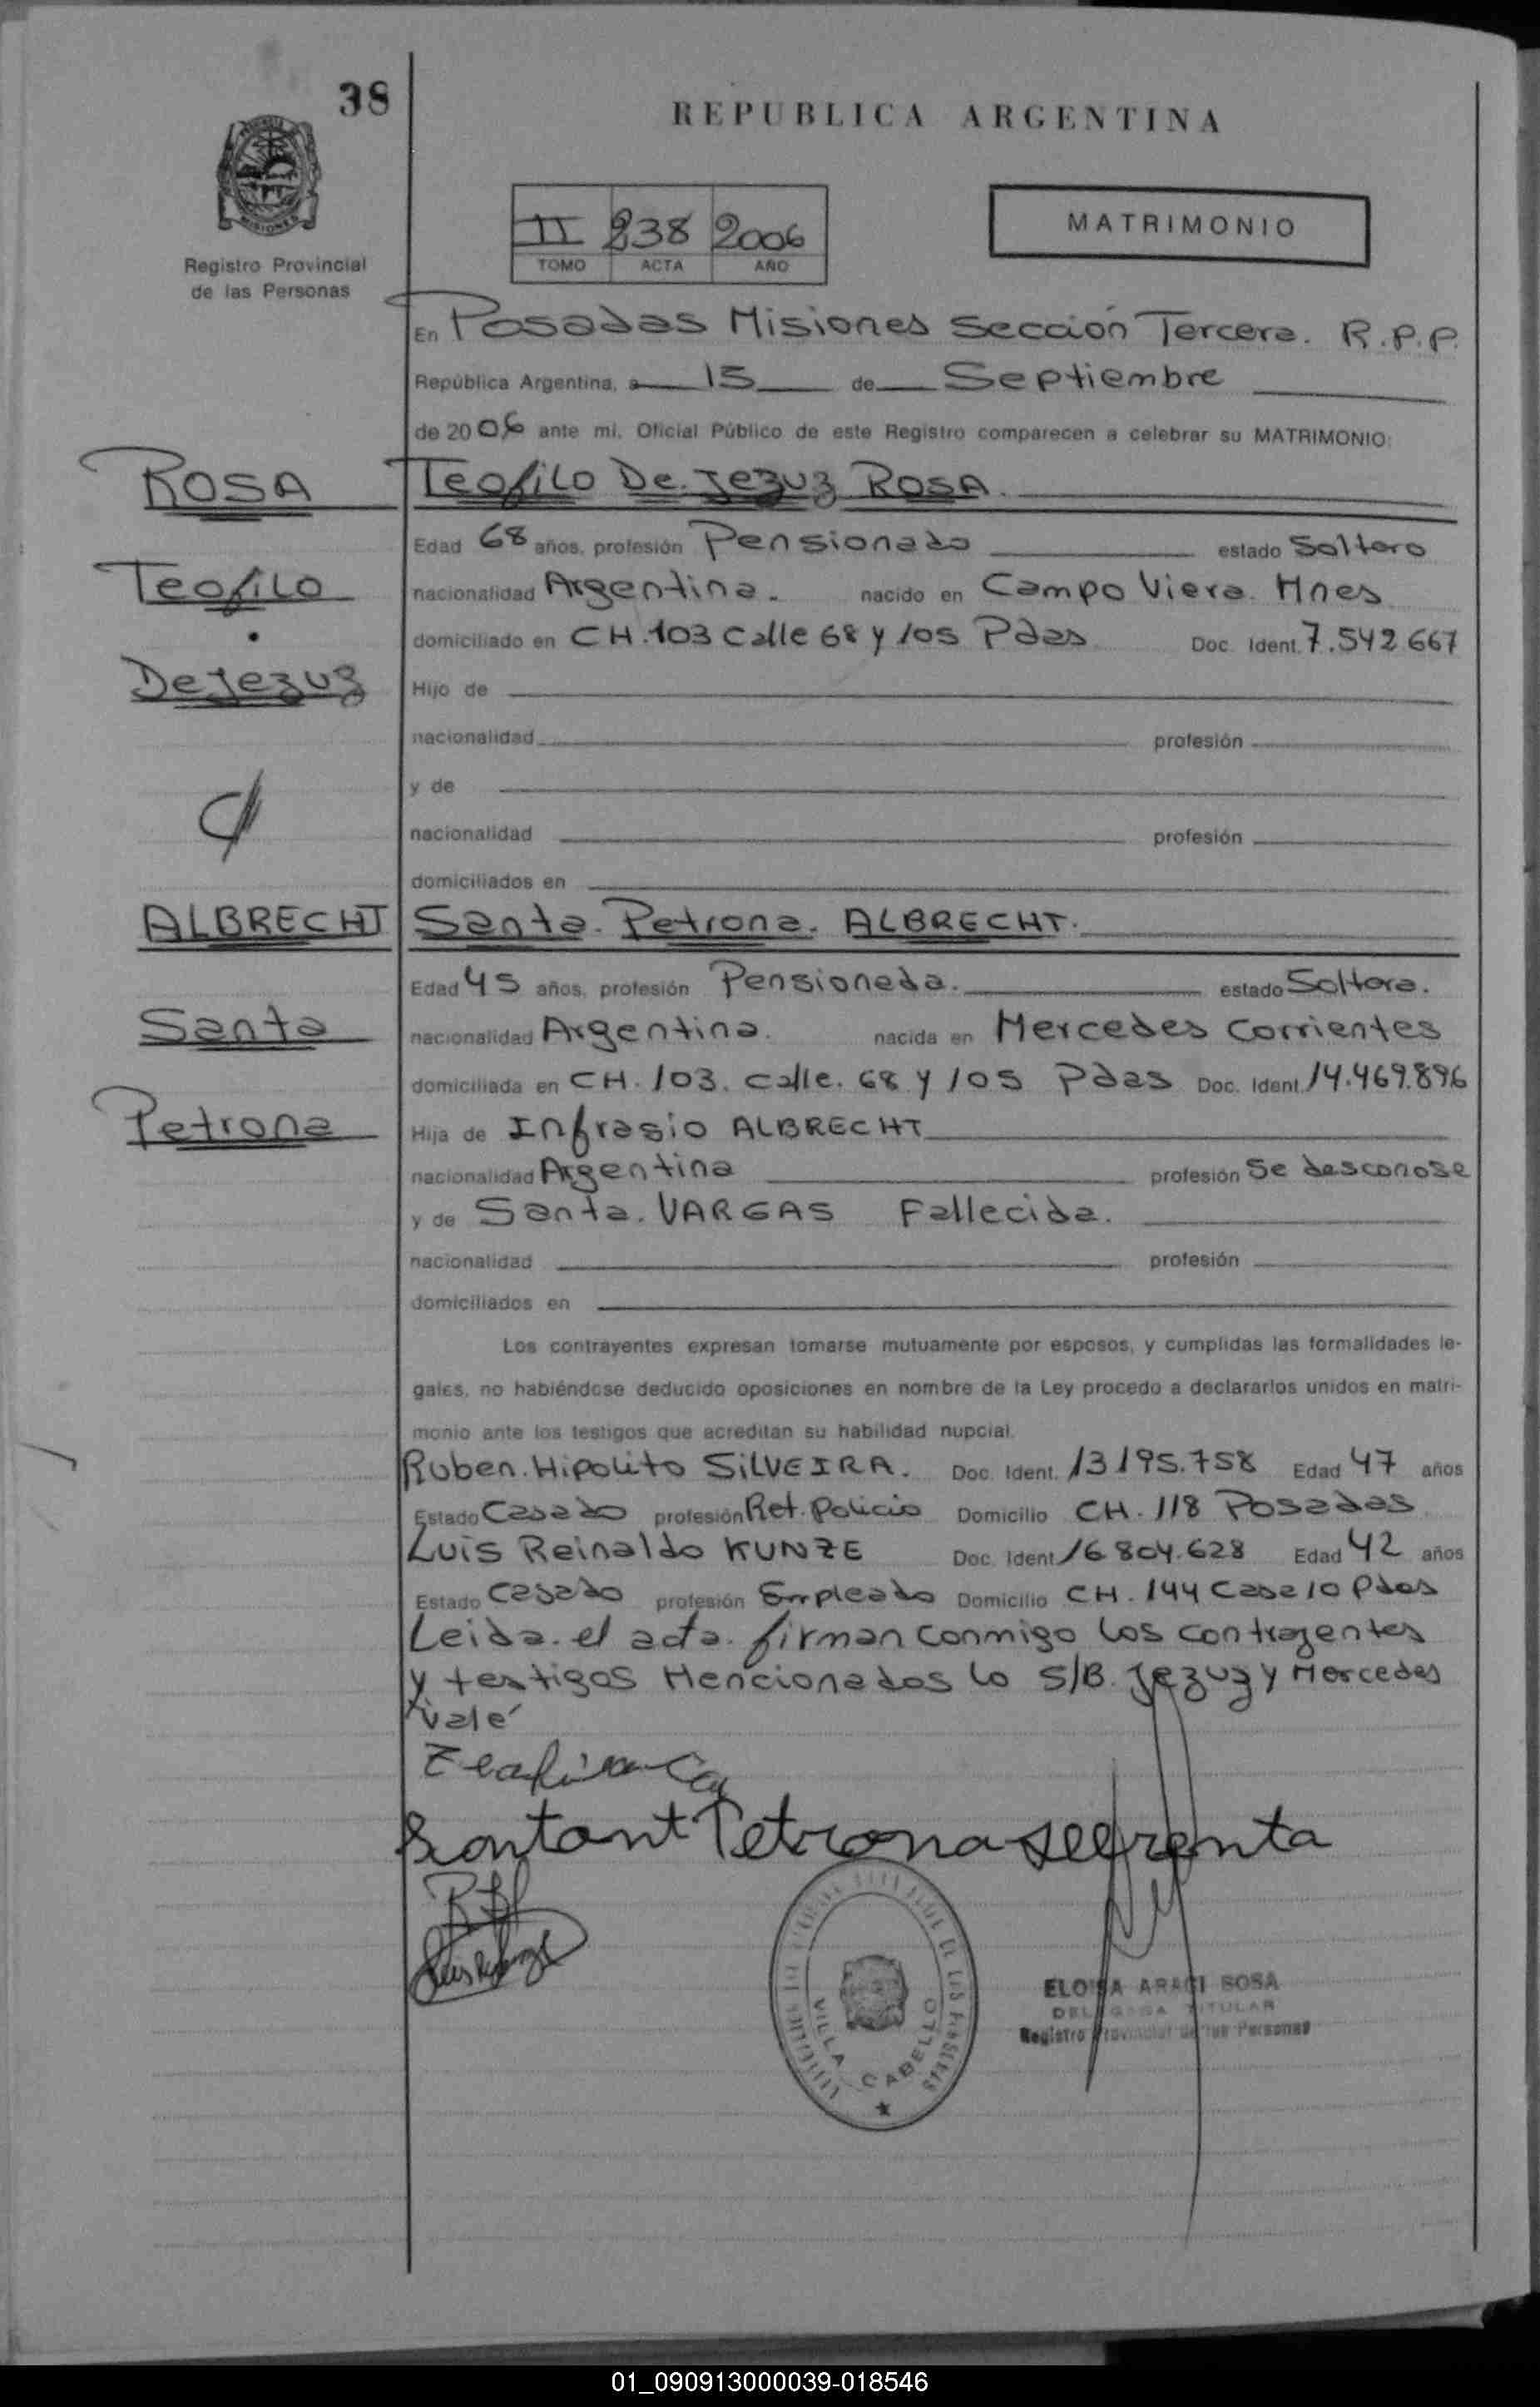 38
REPUBLICA ARGENTINA
II 238 2006
TOMO ACTA AÑO
MATRIMONIO
Registro Provincial
de las Personas
En Posadas Misiones Sección Tercera. R.P.P.
República Argentina, a 15 de Septiembre
de 2006 ante mi, Oficial Público de este Registro comparecen a celebrar su MATRIMONIO:
ROSA
Teofilo De Jezuz ROSA.
Edad 68 años, profesión Pensionado estado Soltero
Teofilo
nacionalidad Argentina. nacido en Campo Viera. Mnes
domiciliado en CH.103 Calle 68 y 105 Pdas Doc. Ident. 7.542.667
De Jezuz
Hijo de
nacionalidad profesión
y de
nacionalidad profesión
domiciliados en
ALBRECHT
Santa. Petrona. ALBRECHT.
Edad 45 años, profesión Pensioneda. estado Soltera.
Santa
nacionalidad Argentina. nacida en Mercedes Corrientes
domiciliada en CH. 103. calle. 68 y 105 Pdas Doc. Ident. 14.469.896
Petrona
Hija de Infrasio ALBRECHT
nacionalidad Argentina profesión Se desconose
y de Santa. VARGAS Fallecida.
nacionalidad profesión
domiciliados en
Los contrayentes expresan tomarse mutuamente por esposos, y cumplidas las formalidades le-
gales, no habiéndose deducido oposiciones en nombre de la Ley procedo a declararlos unidos en matri-
monio ante los testigos que acreditan su habilidad nupcial.
Ruben. Hipolito SILVEIRA. Doc. Ident. 13195.758 Edad 47 años
Estado Casado profesión Ret. Policia Domicilio CH. 118 Posadas
Luis Reinaldo KUNZE Doc. Ident. 16804.628 Edad 42 años
Estado Casado profesión Empleado Domicilio CH. 144 Casa 10 Pdas
Leida. el acta. firman conmigo los contrayentes
y testigos Mencionados lo S/B. Jezuz y Mercedes
vale
Petrona
VILLA CABELLO
ELOISA ARACI SOSA
DELEGADA TITULAR
Registro Provincial de las Personas
01_090913000039-018546